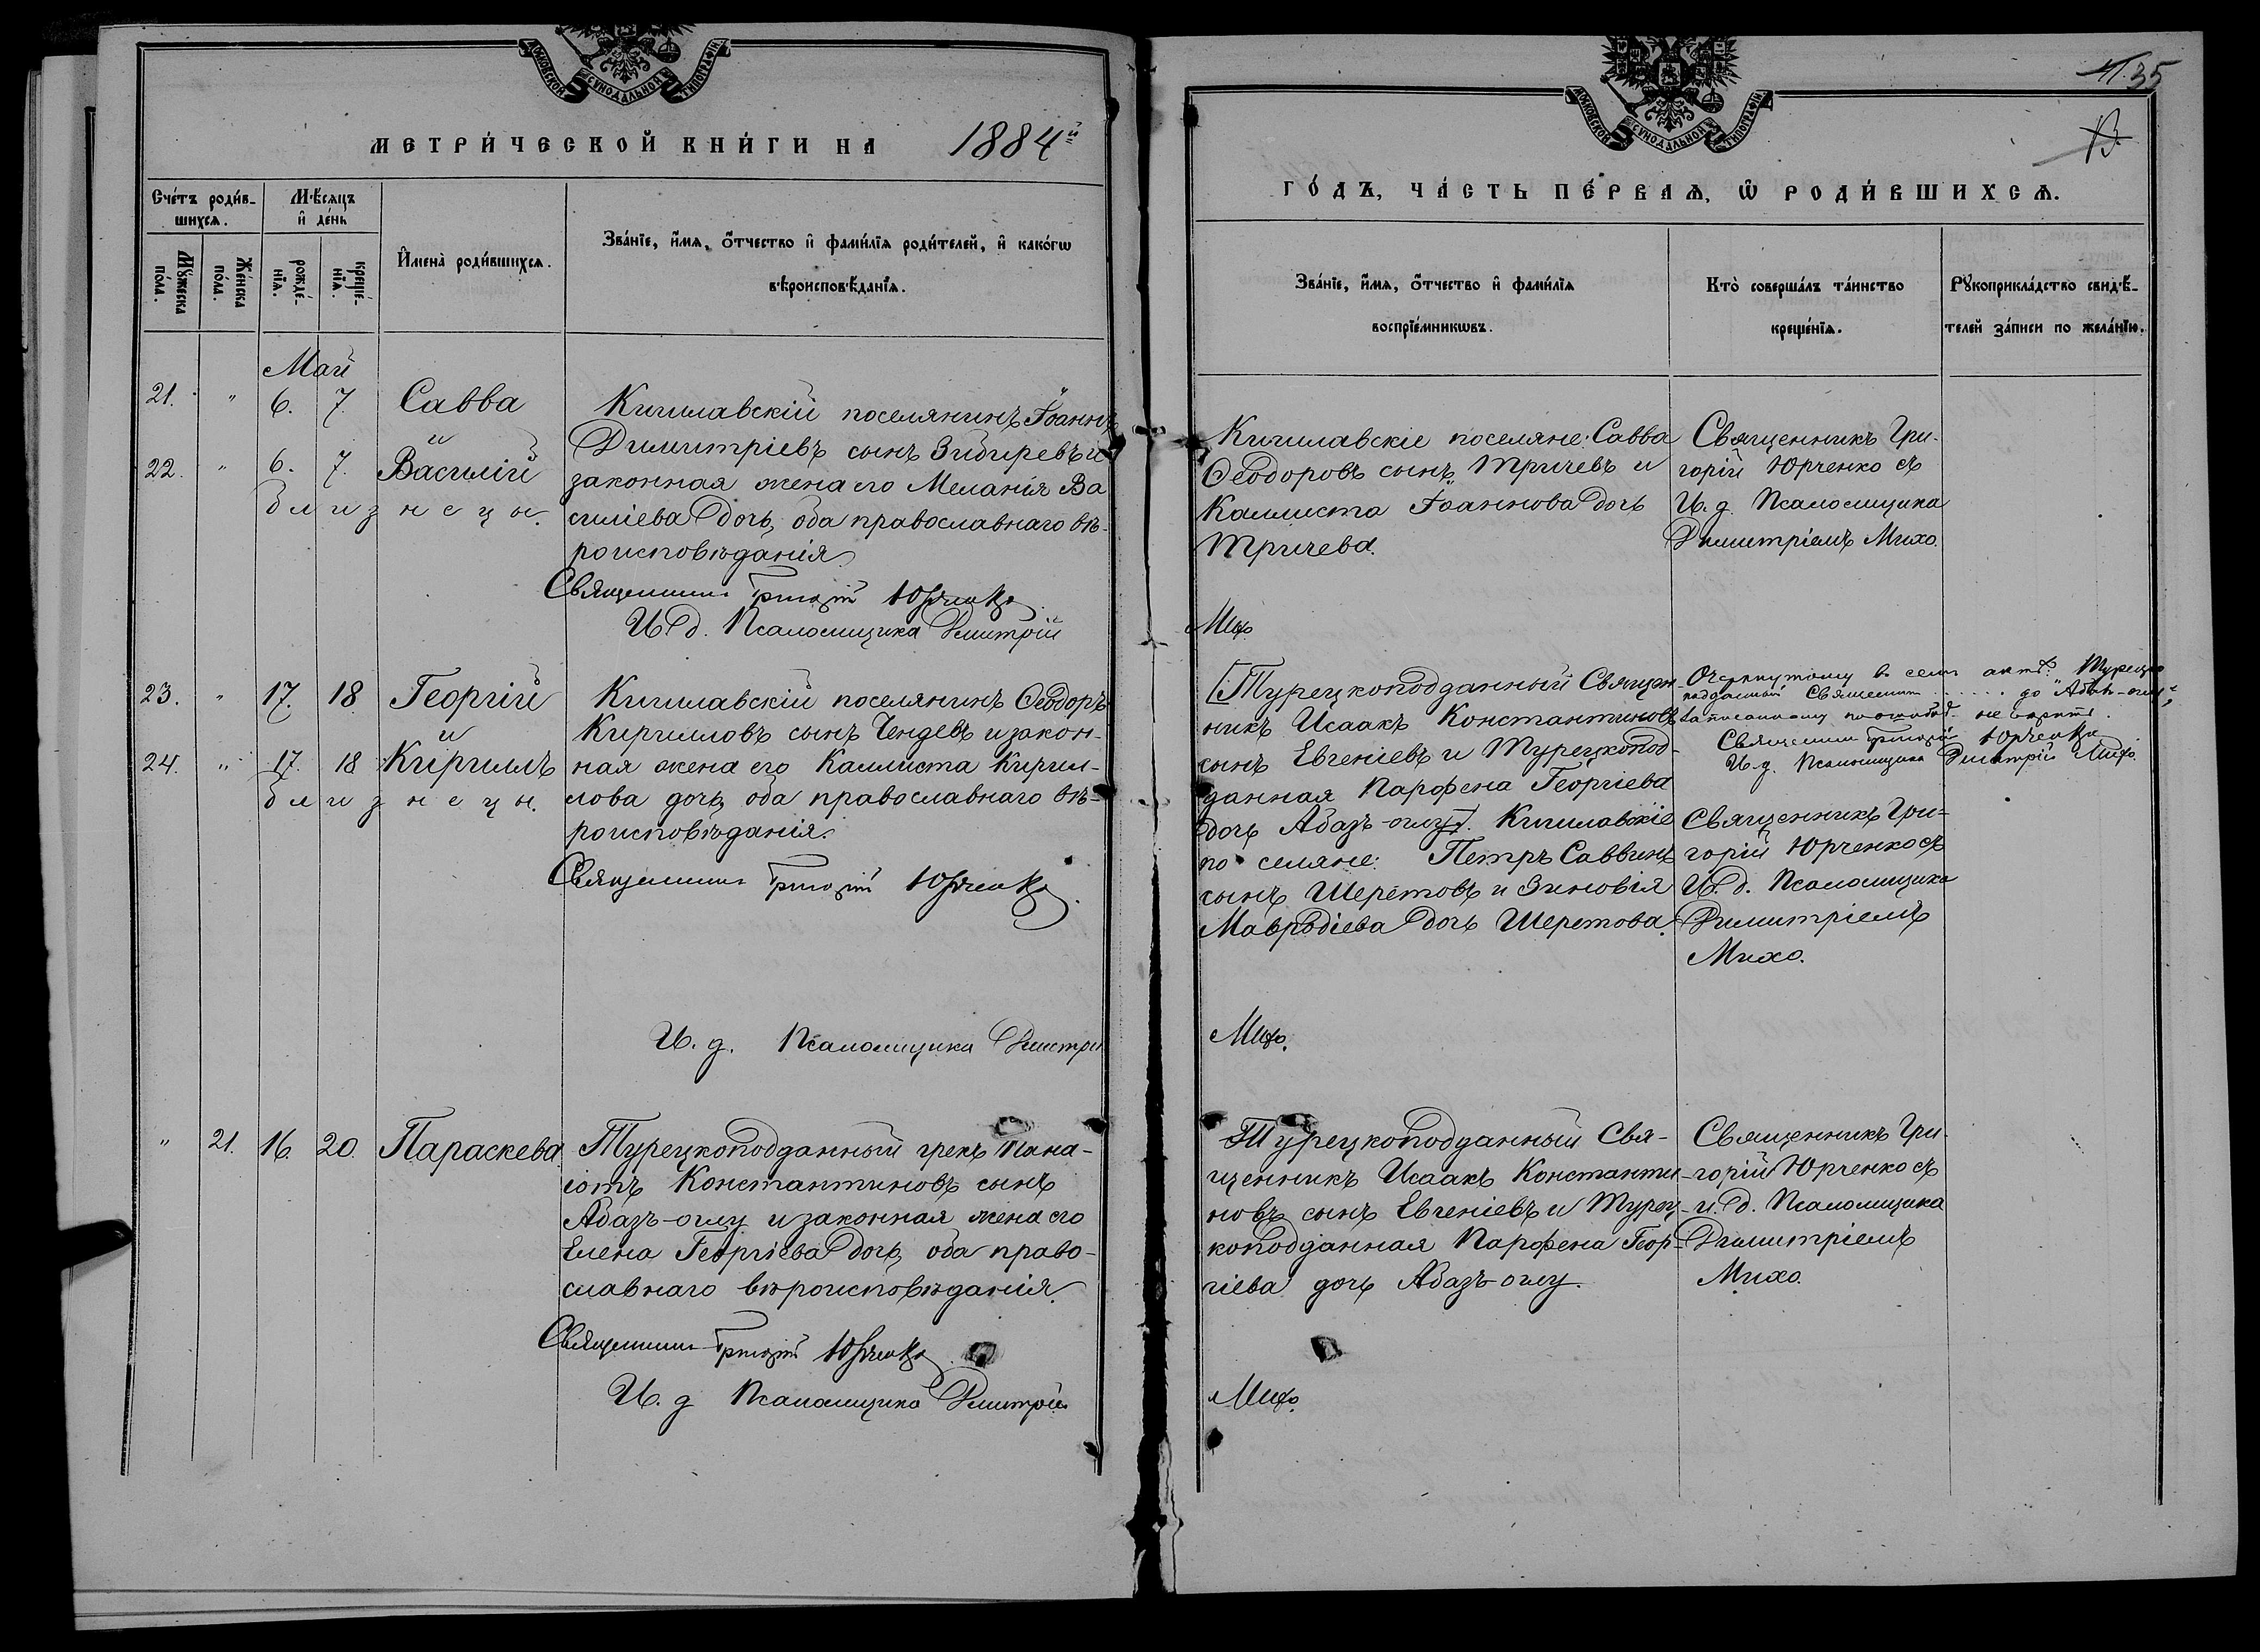 МОСКОВСКОЙ СУНОДАЛЬНОЙ ТИПОГРАФІИ
МЕТРИ́ЧЕСКОЙ КНИ́ГИ НА 1884й
Сче́тъ роди́в-
шихсѧ.
Мѣсяцъ
и҆ де́нь
Мꙋ́жеска
по́ла.
Же́нска
по́ла.
рожде́-
нїѧ.
креще́-
нїѧ.
И҆мена̀ роди́вшихсѧ.
Зва́нїе, и҆́мѧ, ѻ҆́тчество и҆ фами́лїѧ роди́телей, и҆ како́гѡ
вѣроисповѣ́данїѧ.
Май
21. " 6. 7. Савва
и
22. " 6. 7. Василій
близнецы.
Кишлавскій поселянинъ Іоаннъ
Димитріевъ сынъ Зидиревъ и
законная жена его Меланія Ва
силіева дочь, оба православнаго вѣ-
роисповѣданія.
Священникъ Григорій Юрченко
И. д. Псаломщика Димитрій
23. " 17. 18. Георгій
и
24. " 17. 18 Кириллъ
близнецы.
Кишлавскій поселянинъ Ѳеодоръ
Кирилловъ сынъ Чендевъ и закон-
ная жена его Каллиста Кирил-
лова дочь, оба православнаго вѣ-
роисповѣданія.
Священникъ Григорій Юрченко.
И. д. Псаломщика Димитрій
" 21. 16. 20. Параскева.
Турецкоподданный грекъ Пана-
іотъ Константиновъ сынъ
Абазъ-оглу и законная жена его
Елена Георгіева дочь, оба право-
славнаго вѣроисповѣданія.
Священникъ Григорій Юрченко
И. д Псаломщика Димитрій
35
МОСКОВСКОЙ СУНОДАЛЬНОЙ ТИПОГРАФІИ
ГО́ДЪ, ЧА́СТЬ ПЕ́РВАѦ, Ѡ҆ РОДИ́ВШИХСѦ.
Зва́нїе, и҆́мѧ, ѻ҆́тчество и҆ фами́лїѧ
воспрїе́мникѡвъ.
Кто̀ соверша́лъ та́инство
креще́нїѧ.
Рꙋкоприкла́дство свидѣ́-
телей за́писи по жела́нїю.
Кишлавскіе поселяне: Савва
Ѳеодоровъ сынъ Тричевъ и
Каллиста Іоаннова дочь
Тричева.
Священникъ Гри-
горій Юрченко съ
И. д. Псаломщика
Димитріемъ Михо.
Михо
[Турецкоподданный Священ-
никъ Исаакъ Константиновъ
сынъ Евгеніевъ и Турецкопод-
данная Парфена Георгіева
дочь Абазъ-оглу]. Кишлавскіе
поселяне: Петръ Саввинъ
сынъ Шеретовъ и Зиновія
Мавродіева дочь Шеретова.
Очеркнутому въ семъ актѣ: "Турецко
подданный Священникъ ..... до "Абазъ-оглу"
записанному по ошибкѣ не вѣрить.
Священникъ Григорій Юрченко
И. д. Псаломщика Димитрій Михо.
Священникъ Гри-
горій Юрченко съ
И. д. Псаломщика
Димитріемъ
Михо.
Михо.
Турецкоподданный Свя-
щенникъ Исаакъ Константи-
новъ сынъ Евгеніевъ и Турец-
коподданная Парфена Геор-
гіева дочь Абазъ-оглу.
Священникъ Гри-
горій Юрченко съ
и. д. Псаломщика
Димитріемъ
Михо.
Михо.